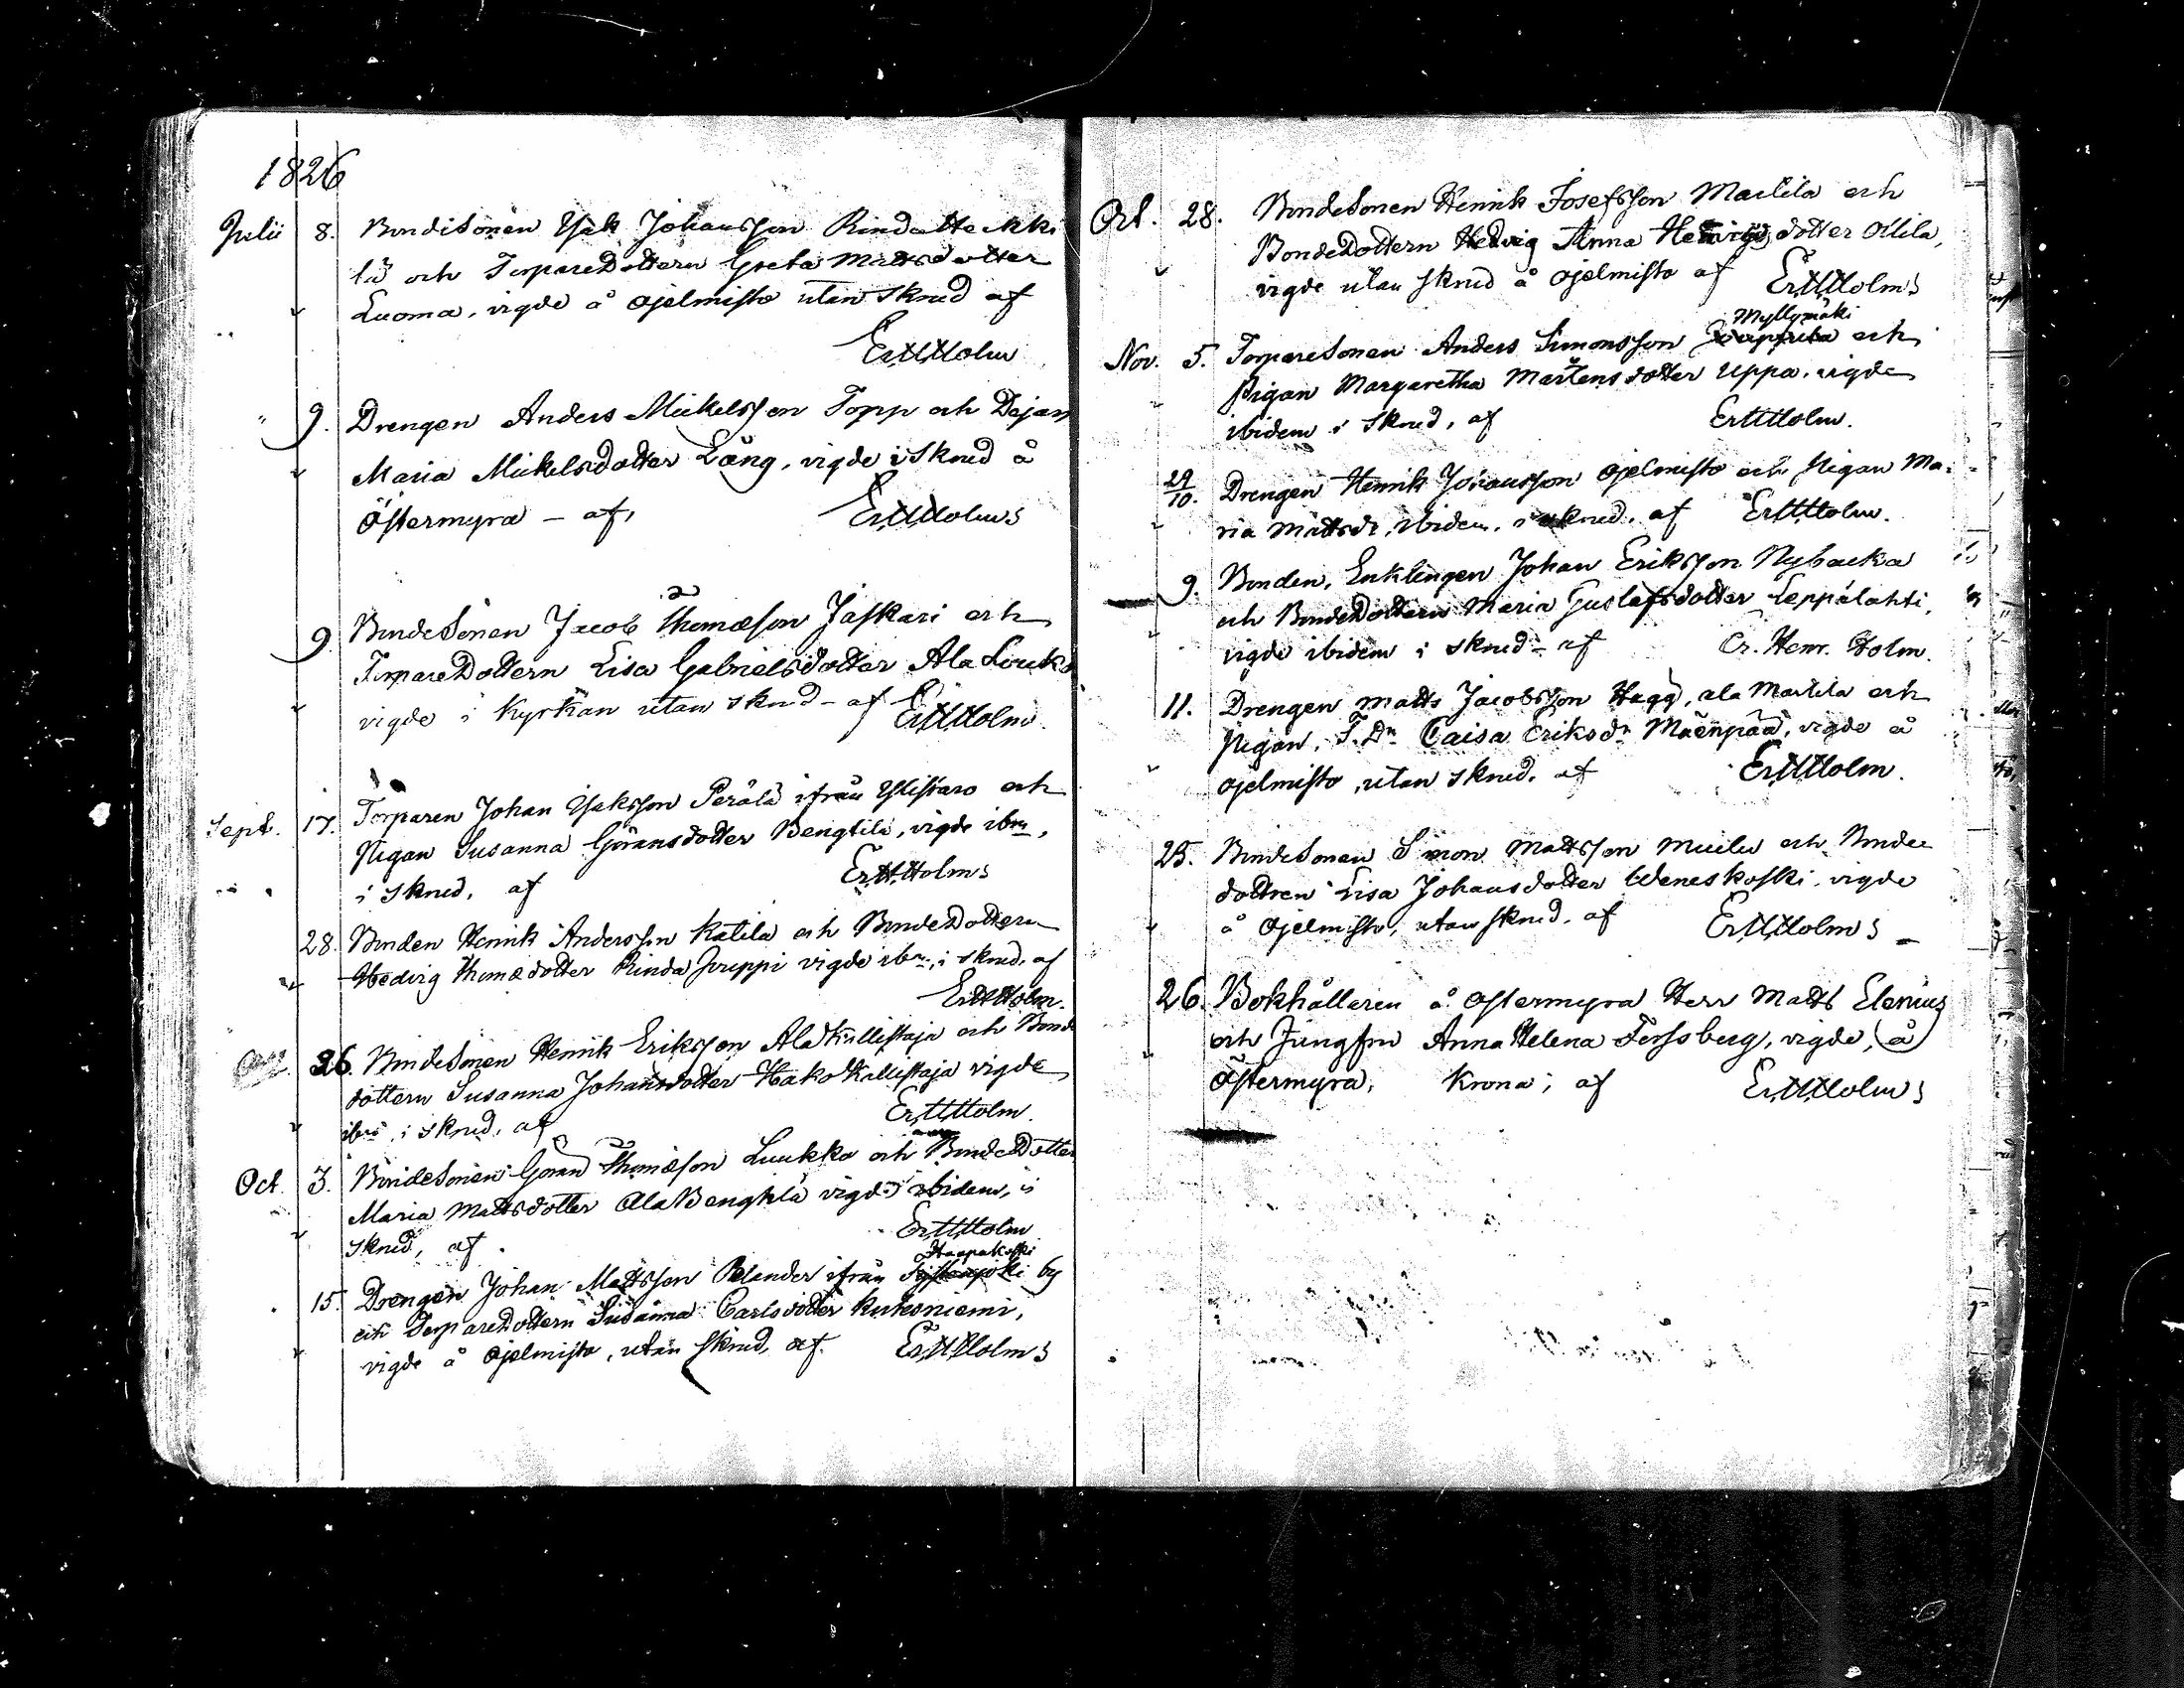 1826
Julii 8. Bondesonen Isak Johansson Rinda Heikki
lä och TorpareDottern Greta Mattsdotter
Luoma, vigde å Ojelmisto utan skrud af
Er. H. Holm
" 9. Drengen Anders Mickelsson Topp och Dejan
Maria Mickelsdotter Lång, vigde i skrud å
Östermyra - af,
Er. H. Holm
9 BondeSonen Jacob Thomæson Jaskari och
TorpareDottern Lisa Gabrielsdotter Ala Louko
vigde i Kyrkan utan skrud - af Er. H. Holm.
Sept. 17. Torparen Johan Isaksson Perälä ifrån Ylistaro och
Pigan Susanna Göransdotter Bengtilä, vigde ibm,
i skrud, af Er. H. Holm
28. Bonden Henrik Andersson Katila och BondeDottern
Hedvig Thomædotter Rinda Juuppi vigde ibm, i skrud, af
Er. H. Holm.
26. BondeSonen Henrik Eriksson Ala Kallistaja och Bonde
dottern Susanna Johansdotter Hako Kallistaja vigde
ibm i skrud, af Er. H. Holm.
Oct. 3. BondeSonen Göran Thomæson Luukko och BondeDotter
Maria Mattsdotter Ala Bengtilä vigde ibidem, i
skrud, af Er. H. Holm
Haapakoski
15. Drengen Johan Mattsson Relander ifrån by
och TorpareDottern Susanna Carlsdotter Kuhoniemi,
vigde å Ojelmisto, utan skrud, af. Er. H. Holm
Oct. 28. BondeSonen Henrik Josefsson Martila och
BondeDottern Hedvig Anna dotter Ollila,
vigde utan skrud å Ojelmisto af Er. H. Holm
Myllymäki
Nov. 5. TorpareSonen Anders Simonsson och
Pigan Margaretha Mårtensdotter Uppa, vigde
ibidem i skrud, af Er. H. Holm.
29/10. Drengen Henrik Johansson Ojelmisto och Pigan Ma-
ria Mattsdr, ibidem, i skrud. af Er. H. Holm.
9. Bonden, Enklingen Johan Eriksson Nybacka
och BondeDottern Maria Gustafsdotter Leppälahti,
vigde ibidem i skrud - af Er. Henr. Holm.
11. Drengen Matts Jacobsson Hagg, ala Martila och
Pigan, T. Dn Caisa Eriksdr Mäenpää, vigde å
Ojelmisto, utan skrud. af Er. H. Holm.
25. BondeSonen Simon Mattsson Muilu och Bonde
dottren Lisa Johansdotter Weneskoski, vigde
å Ojelmisto, utan skrud. af Er. H. Holm
26. Bokhållaren å Östermyra Herr Matts Elenius
och Jungfru Anna Helena Forssberg, vigde, å
Östermyra, Krona, af Er. H. Holm